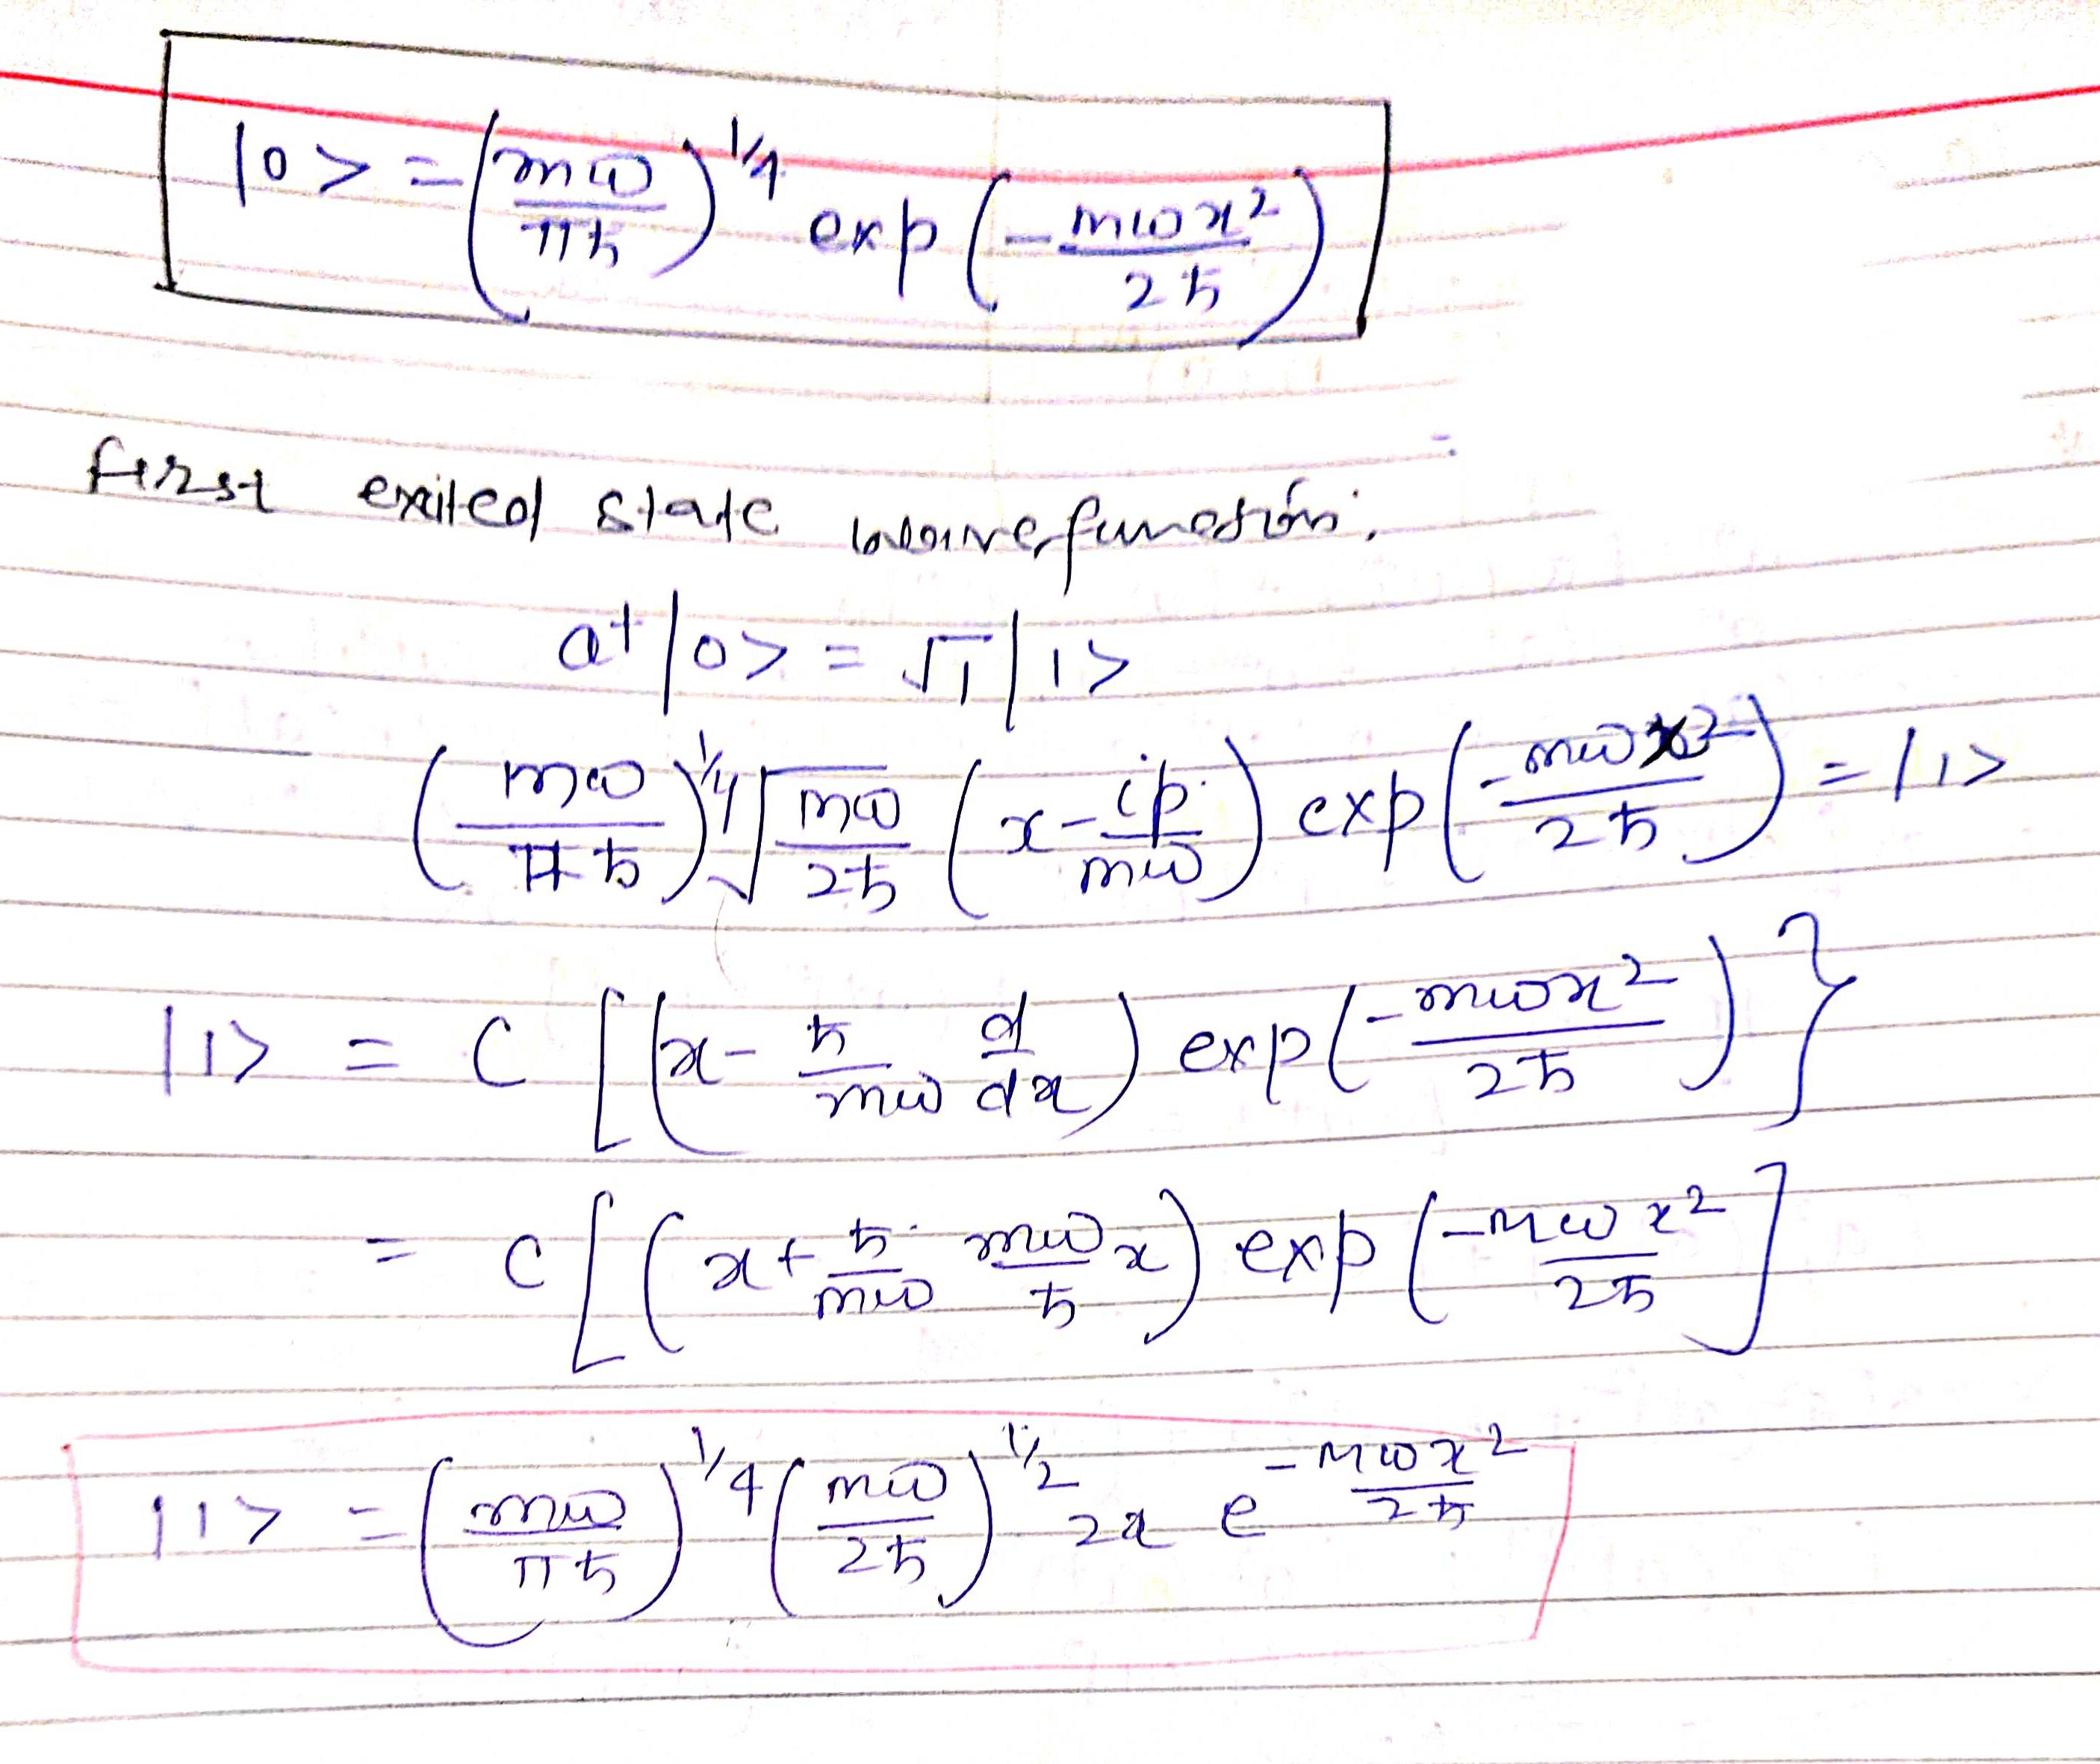 |0> = (mω/πħ)^1/4 exp(-mωx²/2ħ)
first exited state wavefunction.
a† |0> = √1 |1>
(mω/πħ)^1/4 √(mω/2ħ) (x - ip/mω) exp(-mωx²/2ħ) = |1>
|1> = C [(x - ħ/mω d/dx) exp(-mωx²/2ħ)}
= C [(x + ħ/mω mω/ħ x) exp(-mωx²/2ħ]
|1> = (mω/πħ)^1/4 (mω/2ħ)^1/2 2x e^-mωx²/2ħ